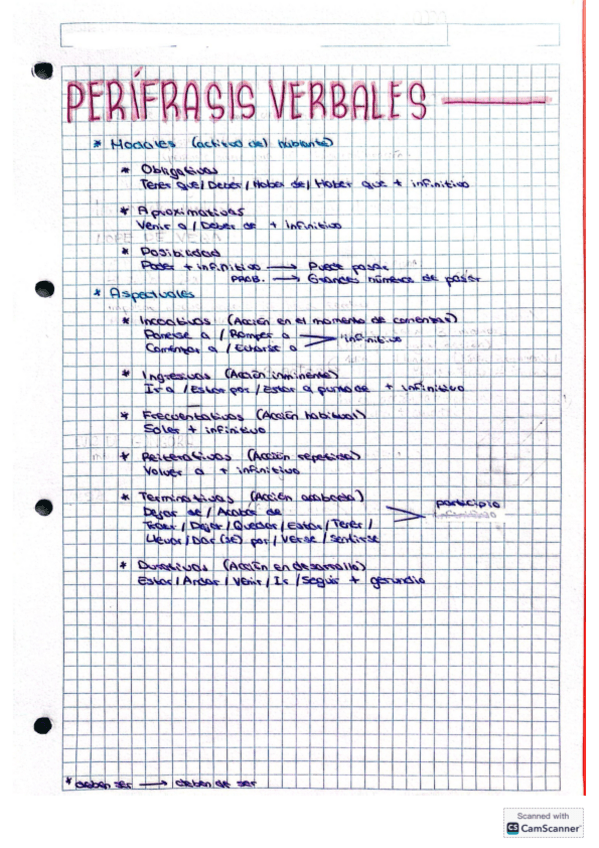 PERÍFRASIS VERBALES
* Modales (actitud del hablante)
* Obligativas
Tener que / Deber / Haber de / Haber que + infinitivo
* Aproximativas
Venir a / Deber de + infinitivo
* Posibilidad
Poder + infinitivo → Puede pasar
PROB. → Grandes números de pasar
* Aspectuales
* Incoativas (Acción en el momento de comenzar)
Ponerse a / Romper a
Comenzar a / Echarse a > infinitivo
* Ingresivas (Acción inminente)
Ir a / Estar por / Estar a punto de + infinitivo
* Frecuentativas (Acción habitual)
Soler + infinitivo
* Reiterativas (Acción repetida)
Volver a + infinitivo
* Terminativas (Acción acabada)
Dejar de / Acabar de > participio
Traer / Dejar / Quedar / Estar / Tener / infinitivo
Llevar / Dar (se) por / Verse / Sentirse
* Durativas (Acción en desarrollo)
Estar / Andar / Venir / Ir / Seguir + gerundio
* deben ser → deben de ser
Scanned with
CS CamScanner